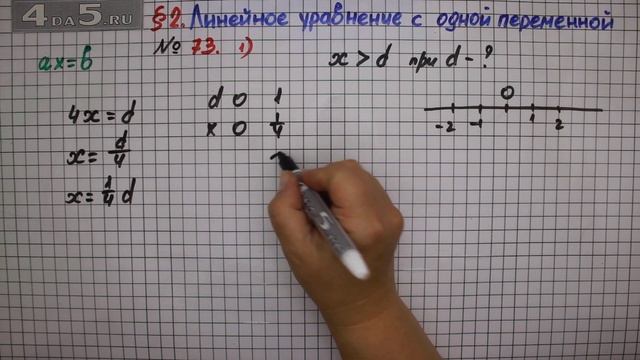 4DA5.RU
§2. Линейное уравнение с одной переменной
№ 73. 1)
x > d при d - ?
ax = b
4x = d
x = d/4
x = 1/4 d
d 0 1
x 0 1/4
0
-2 -1 1 2
5